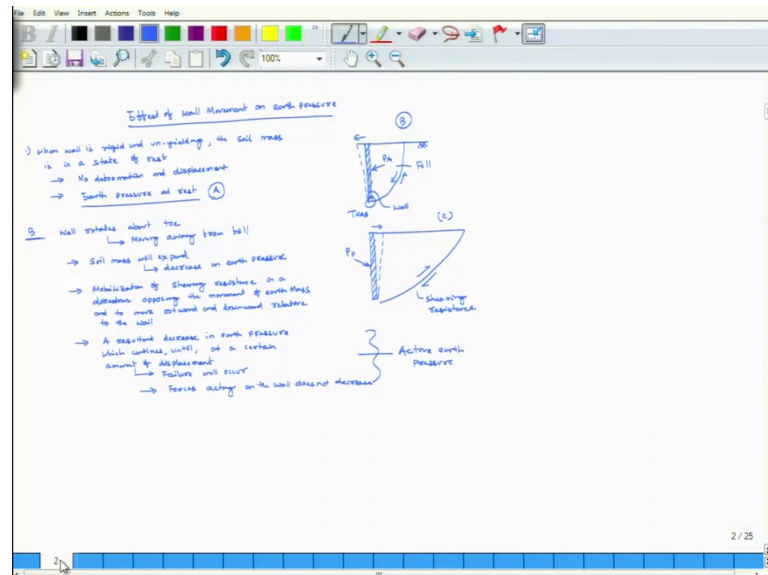 File Edit View Insert Actions Tools Help
B I
100%
Effect of Wall Movement on earth pressure
1) When wall is rigid and un-yielding, the soil mass
is in a state of rest
→ No deformation and displacement
→ Earth pressure at rest (A)
B Wall rotates about toe
↳ Moving away from fill
→ Soil mass will expand
↳ decrease in earth pressure
→ Mobilization of shearing resistance in a
direction opposing the movement of earth mass
and to move outward and downward relative
to the wall
→ A resultant decrease in earth pressure
which continues, until, at a certain
amount of displacement
↳ Failure will occur
→ Forces acting on the wall does not decrease
(B)
PA
Fill
Wall
Toe
(C)
Pp
Shearing
resistance
Active earth
pressure
2 / 25
2